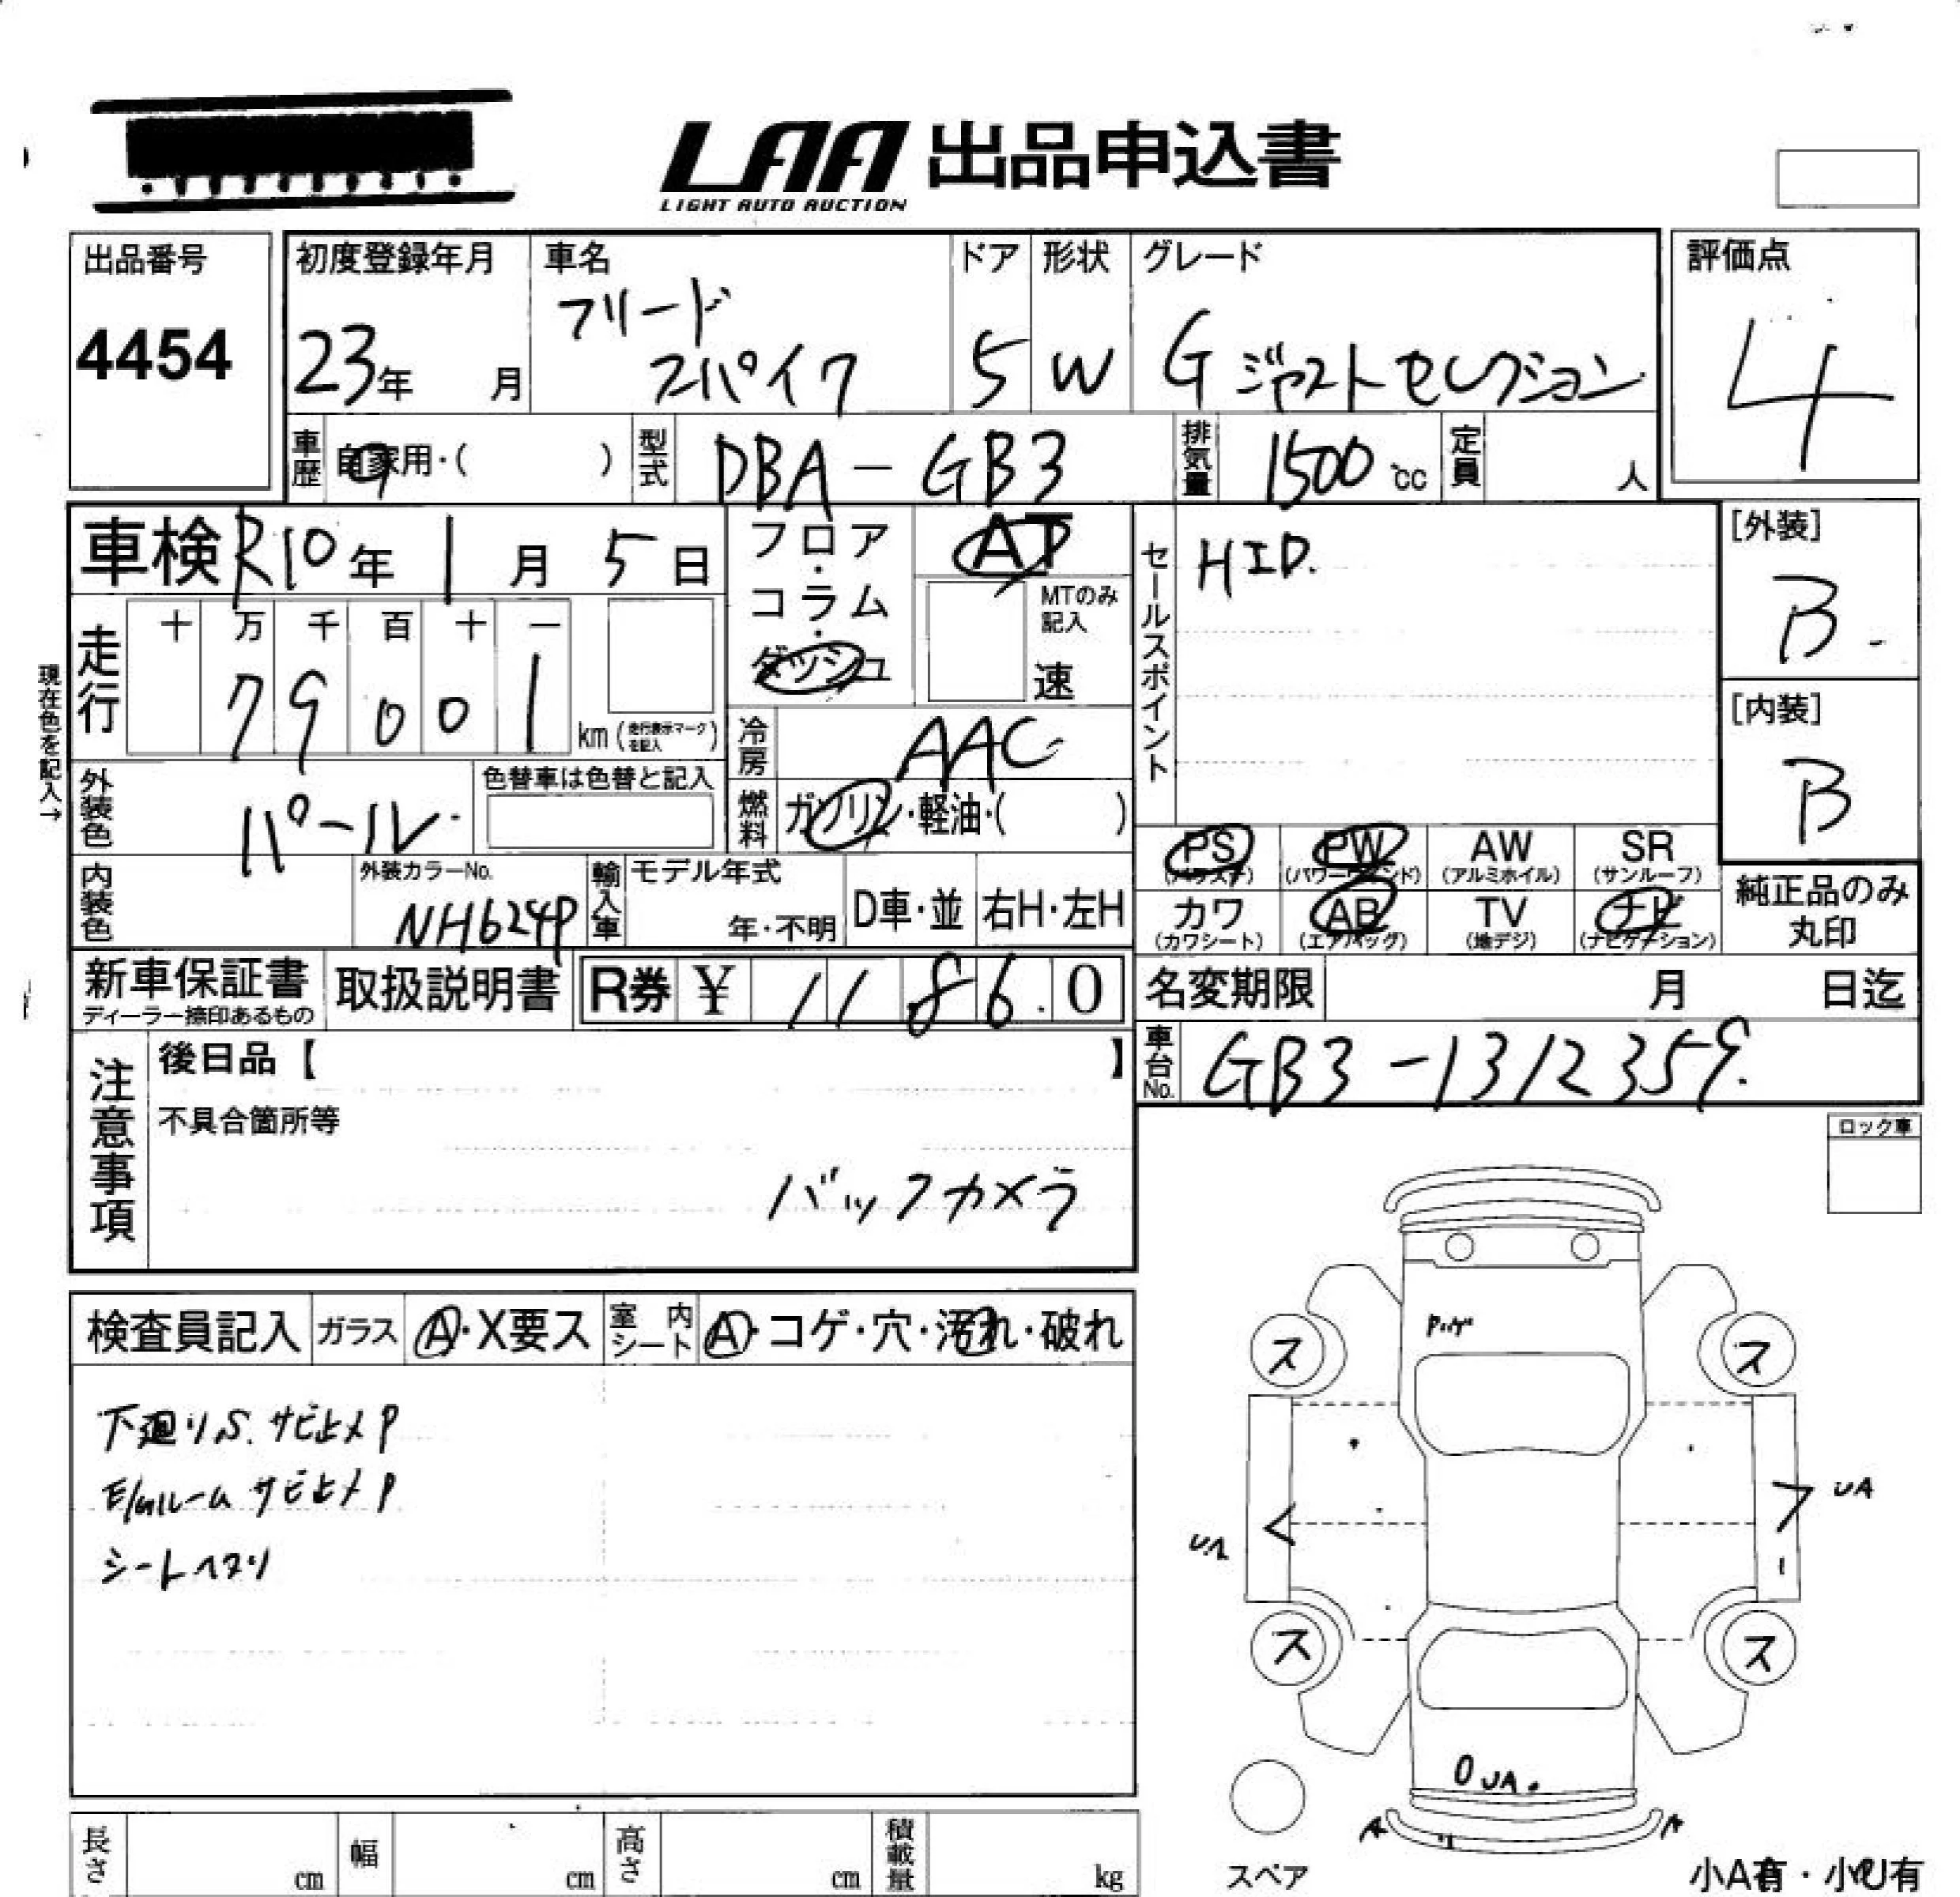 LAA 出品申込書
LIGHT AUTO AUCTION
出品番号
4454
初度登録年月
23年 月
車名
フリード
スパイク
ドア
5
形状
W
グレード
G ジャストセレクション
評価点
4
車歴
自家用・( )
型式
DBA-GB3
排気量
1500 cc
定員
人
車検 R10年 1月 5日
フロア・コラム・ダッシュ
AT
MTのみ記入
速
セールスポイント
HID.
[外装]
B
[内装]
B
現在色を記入→
走行
十 万 千 百 十 一
7 9 0 0 1
km (走行表示マークを記入)
冷房
AAC
外装色
パール
色替車は色替と記入
燃料
ガソリン・軽油・( )
PS
PW
AW
(アルミホイル)
SR
(サンルーフ)
カワ
(カワシート)
AB
(エアバッグ)
TV
(地デジ)
ナビ
(ナビゲーション)
純正品のみ
丸印
内装色
外装カラーNo.
NH624P
輸入車
モデル年式
年・不明
D車・並
右H・左H
新車保証書
ディーラー捺印あるもの
取扱説明書
R券 ¥ 1186.0
名変期限
月 日迄
車台No.
GB3-1312359.
注意事項
後日品【 】
不具合箇所等
バックカメラ
ロック車
検査員記入
ガラス
A・X要ス
室内シート
A・コゲ・穴・汚れ・破れ
下廻りS. サビ止メP
E/gルーム サビ止メP
シートヘタリ
ス
ス
UA
ス
ス
UA.
A
A
スペア
小A有・小U有
長さ
cm
幅
cm
高さ
cm
積載量
kg